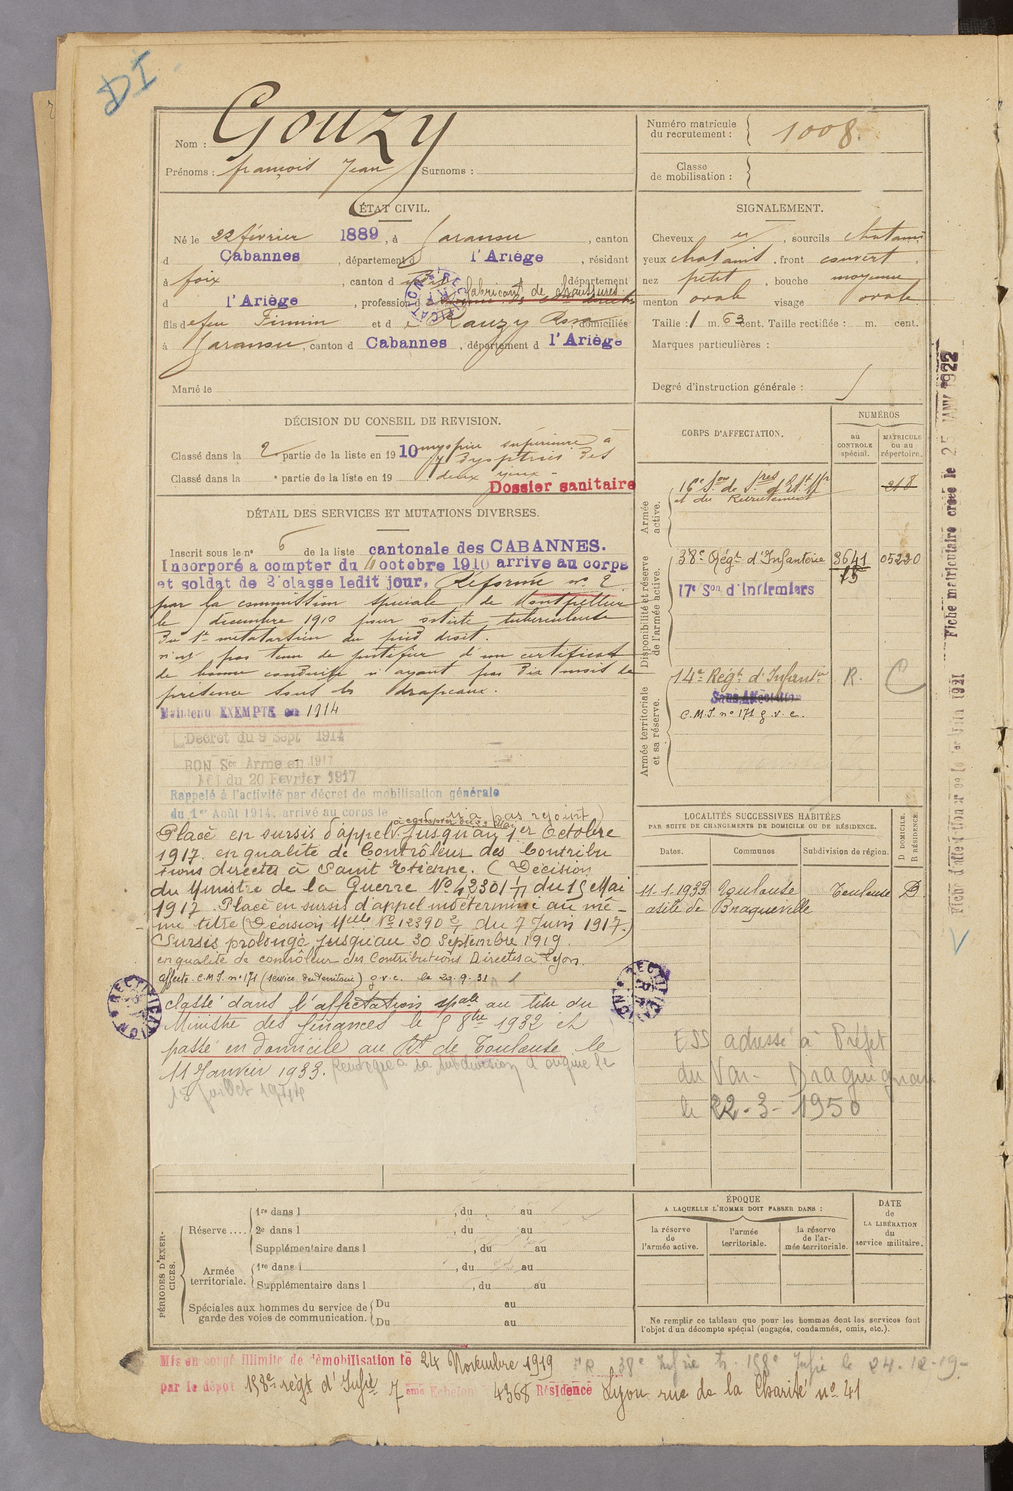 DI
Nom : Gouzy
Prénoms : françois Jean Surnoms :
Numéro matricule du recrutement : 1008
Classe de mobilisation :
ÉTAT CIVIL.
Né le 22 février 1889, à Garanou, canton
d Cabannes, département d l'Ariège, résidant
à foix, canton d département
d l'Ariège, profession d fabricant de chaussures
fils de feu Firmin et d e Rauzy Rosa domiciliés
à Garanou, canton d Cabannes, département d l'Ariège
Marié le
SIGNALEMENT.
Cheveux et, sourcils chatains
yeux chatains, front couvert
nez petit, bouche moyenne
menton ovale visage ovale
Taille : 1 m. 63 cent. Taille rectifiée : m. cent.
Marques particulières :
Degré d'instruction générale :
DÉCISION DU CONSEIL DE REVISION.
Classé dans la 2 partie de la liste en 1910 myopie supérieure à
7 dyoptries des
Classé dans la partie de la liste en 19 deux yeux
Dossier sanitaire
DÉTAIL DES SERVICES ET MUTATIONS DIVERSES.
Inscrit sous le n° 6 de la liste cantonale des CABANNES.
Incorporé a compter du octobre 1910 arrive au corps
et soldat de 2e classe ledit jour. Réformé n° 2
par la commission spéciale de Montpellier
le décembre 1910 pour ostéite tuberculeuse
du 1er métatarsien du pied droit.
n'a pas tenu de justifier d'un certificat
de bonne conduite n'ayant pas dix mois de
présence sous les drapeaux.
Maintenu EXEMPTÉ en 1914
Décret du 9 Sept 1914
BON Sce Armé en 1917
LOI du 20 Fevrier 1917
Rappelé à l'activité par décret de mobilisation générale
du 1er Août 1914, arrivé au corps le (n'a pas rejoint)
Placé en sursis d'appel jusqu'au 1er Octobre
1917 en qualité de Contrôleur des Contribu
tions directes à Saint Etienne. (Décision
du Ministre de la Guerre No 42301 du 15 Mai
1917. Placé en sursis d'appel indéterminé au mê-
me titre (Décision Mlle No 12390 du 7 Juin 1917.)
Sursis prolongé jusqu'au 30 Septembre 1919.
en qualité de contrôleur des Contributions Directes à Lyon.
affecté C.M.I. n° 171 (service du territoire) g.v.c. le 29.9.31
classé dans l'affectation spale au titre du
Ministre des finances le 8bre 1932 et
passé en domicile au Rt de Toulouse le
11 Janvier 1933. Renvoyé à sa subdivision d'origine le
18 juillet 1944
RECTIFICATION
CORPS D'AFFECTATION.
NUMÉROS
au CONTROLE spécial.
MATRICULE ou au répertoire.
Armée active.
16e Son de Sres d'Et Mr
et du Recrutement 218
Disponibilité et réserve de l'armée active.
38e Régt d'Infanterie 3641 05220
15
17e Son d'Infirmiers
Armée territoriale et sa réserve.
14e Régt d'Infanie R. C
Sans Affectation
C.M.I. n° 171 g.v.c.
LOCALITÉS SUCCESSIVES HABITÉES
PAR SUITE DE CHANGEMENTS DE DOMICILE OU DE RÉSIDENCE.
Dates. Communes Subdivision de région. D DOMICILE. R RÉSIDENCE.
11.1.1933 Toulouse Toulouse D
asile de Braqueville
ESS adressé à Préfet
du Var - Draguignan
le 22-3-1950
Fiche matriculaire créée le 25 JANV 1922
Fiche d'affectation
PÉRIODES D'EXERCICES.
Réserve .... 1re dans l , du au
2e dans l , du au
Supplémentaire dans l , du au
Armée territoriale. 1re dans l , du au
Supplémentaire dans l , du au
Spéciales aux hommes du service de garde des voies de communication. Du au
Du au
ÉPOQUE
A LAQUELLE L'HOMME DOIT PASSER DANS :
la réserve de l'armée active.
l'armée territoriale.
la réserve de l'armée territoriale.
DATE de LA LIBÉRATION du service militaire.
Ne remplir ce tableau que pour les hommes dont les services font
l'objet d'un décompte spécial (engagés, condamnés, omis, etc.).
Mis en congé illimité de démobilisation le 24 Novembre 1919 38e Infie tr. 158e Infie le 24-12-19
par le dépôt 158e régt d'Infie 7ème Echelon 4368 Résidence Lyon rue de la Charité n° 41